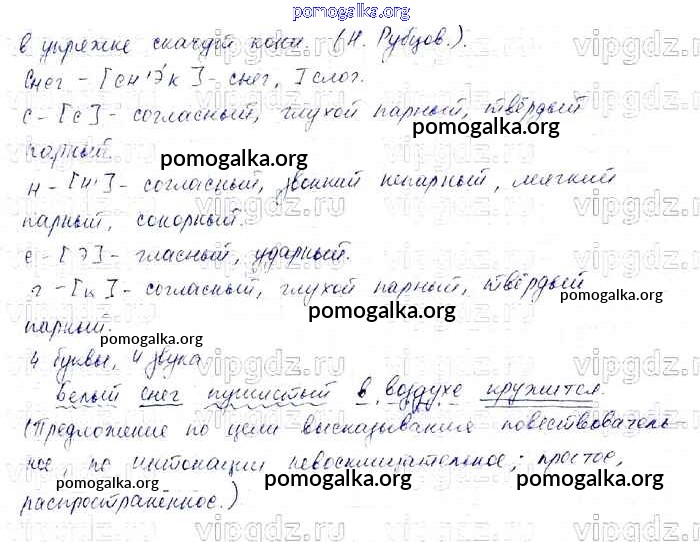 pomogalka.org
в упряжке скачут кони. (Н. Рубцов.).
Снег – [сн'э́к] – снег, 1 слог.
с – [с] – согласный, глухой парный, твёрдый
парный.
н – [н'] – согласный, звонкий непарный, мягкий
парный, сонорный.
е – [э] – гласный, ударный.
г – [к] – согласный, глухой парный, твёрдый
парный.
4 буквы, 4 звука
Белый снег пушистый в воздухе кружится.
(Предложение по цели высказывания повествователь-
ное, по интонации невосклицательное; простое,
распространённое.)
pomogalka.org
pomogalka.org
pomogalka.org
pomogalka.org
pomogalka.org
pomogalka.org
pomogalka.org
pomogalka.org
vipgdz.ru